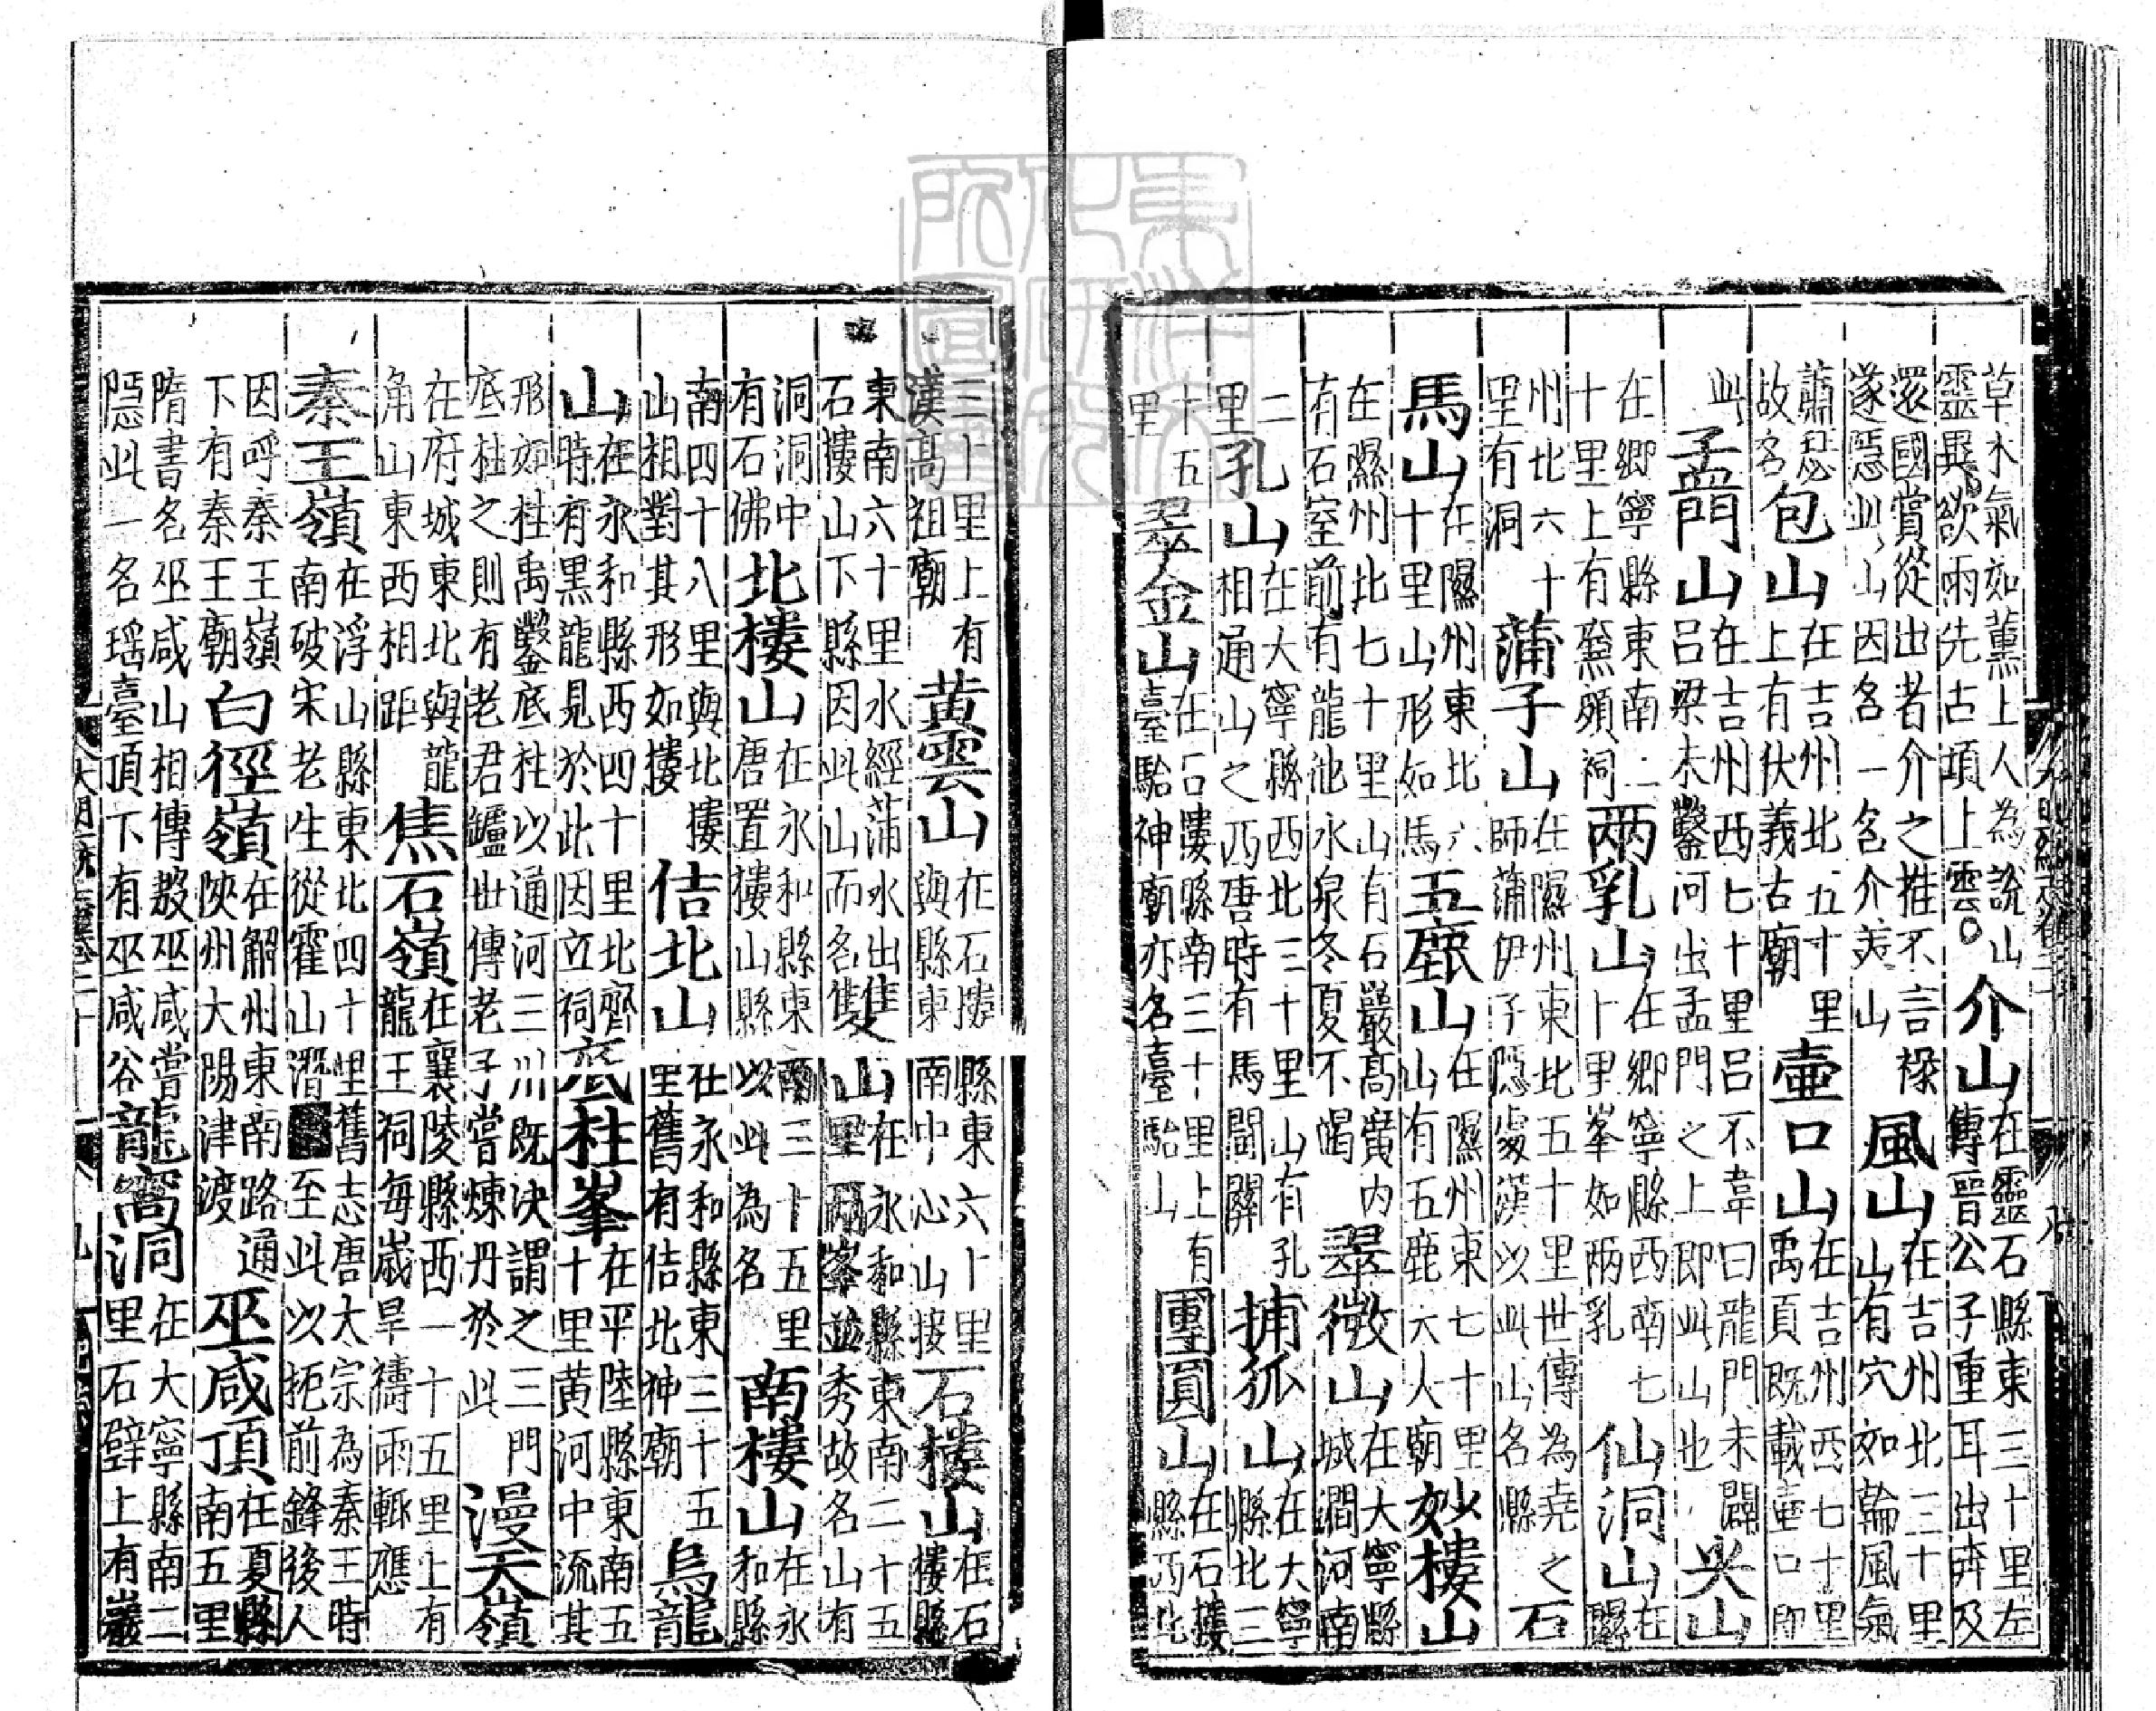 草木氣如薰上人為說山
靈異欲雨先古項上雲○介山在靈石縣東三十里左
傳晉公子重耳出奔及
還國賞從出者介之推不言祿
遂隱此山因名一名介美山風山在吉州北三十里
山有穴如輪風氣
蕭瑟
故名包山在吉州北五十里
上有伏義古廟壺口山在吉州西七十里
禹貢既載壺口即
此孟門山在吉州西七十里呂不韋曰龍門未闢
呂梁未鑿河出孟門之上即此山也尖山
在鄉寧縣東南二
十里上有廉頗祠兩乳山在鄉寧縣西南七
十里峯如兩乳仙洞山在隰
州北六十
里有洞蒲子山在隰州東北五十里世傳為堯之
師蒲伊子隱處漢以此山名縣石
馬山在隰州東北六
十里山形如馬五鹿山在隰州東七十里
山有五鹿大人廟妙樓山
在隰州北七十里山有石巖高廣內
有石室前有龍池水泉冬夏不竭翠微山在大寧縣
城澗河南
二
里孔山在大寧縣西北三十里山有孔
相通山之西唐時有馬鬭關捕狐山在大寧
縣北三
十五
里翠金山在石樓縣南三十里上有
臺駘神廟亦名臺駘山團圓山在石樓
縣西北
三十里上有
漢高祖廟黃雲山在石樓縣東六十里
與縣東南中心山接石樓山在石
樓縣
東南六十里水經蒲水出
石樓山下縣因此山而名雙山在永和縣東南二十五
里兩峯並秀故名山有
洞洞中
有石佛北樓山在永和縣東南三十五里
唐置樓山縣以此為名南樓山在永
和縣
南四十八里與北樓
山相對其形如樓佶北山在永和縣東三十五
里舊有佶北神廟烏龍
山在永和縣西四十里北齊
時有黑龍見於此因立祠底柱峯在平陸縣東南五
十里黃河中流其
形如柱禹鑿底柱以通河三川既決謂之三門
底柱之則有老君鑪世傳老子嘗煉丹於此漫天嶺
在府城東北與龍
角山東西相距焦石嶺在襄陵縣西一十五里上有
龍王祠每歲旱禱雨輒應
秦王嶺在浮山縣東北四十里舊志唐太宗為秦王時
南破宋老生從霍山潛至此以扼前鋒後人
因呼秦王嶺
下有秦王廟白徑嶺在解州東南路通
陝州大陽津渡巫咸頂在夏縣
南五里
隋書名巫咸山相傳殷巫咸嘗
隱此一名瑤臺頂下有巫咸谷龍窩洞在大寧縣南二
里石壁上有巖